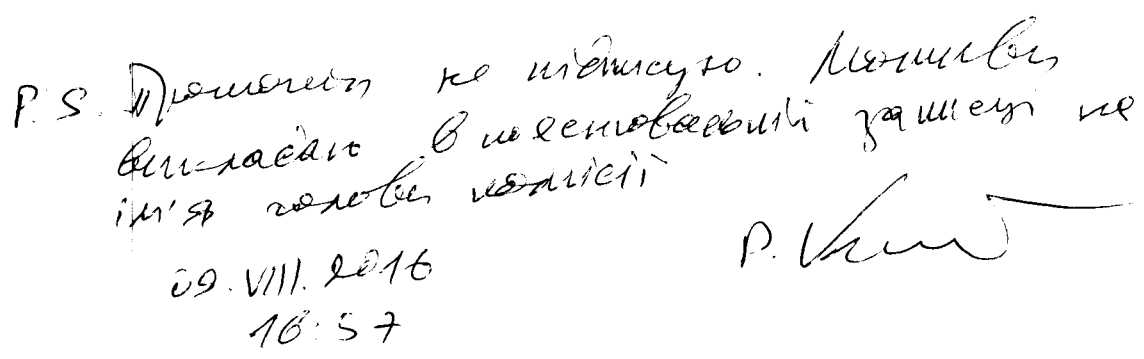 P.S. Протокол не підписую. Мотиви
викладаю в мотивованій записці на
ім'я голови комісії
09.VIII.2016
16:57
Р.